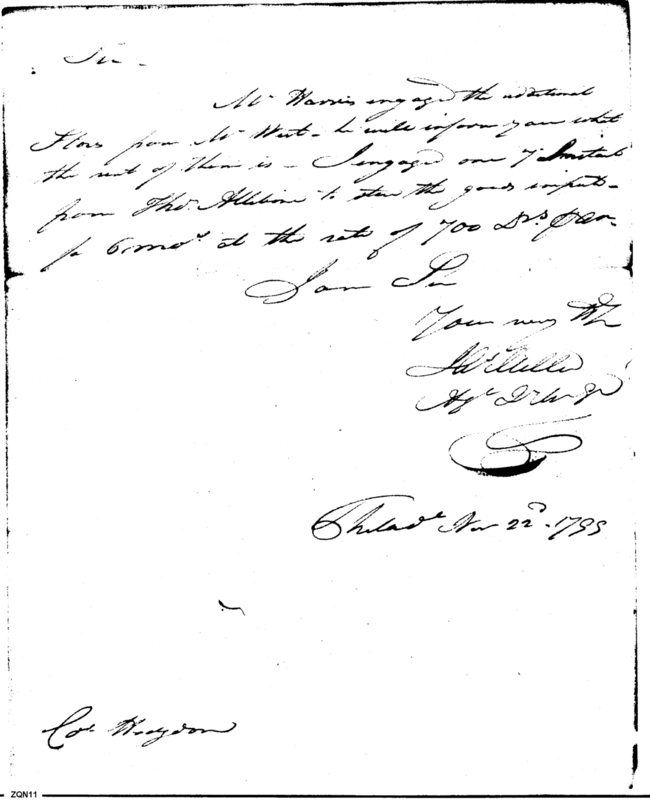 Sir -
Mr. Harris engaged the additional
Stores from Mr. West - he will inform you what
the rent of them is - I engaged one 7th Instant
from Thos. Allibone to store the goods
for 6 mos. at the rate of 700 Drs. Ann.
I am Sir
Your very
Jno. Miller
Philada. Nov 22d. 1799
Col.
ZQN11